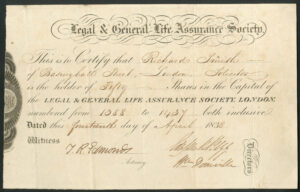 Legal & General Life Assurance Society.
This is to Certify that Richard Smith
of Basinghall Street, London Solicitor
is the holder of Fifty Shares in the Capital of
the LEGAL & GENERAL LIFE ASSURANCE SOCIETY, LONDON,
numbered from 1388 to 1437 both inclusive
Dated this fourteenth day of April 183
Witness
T. R. Edmonds
Actuary
Directors